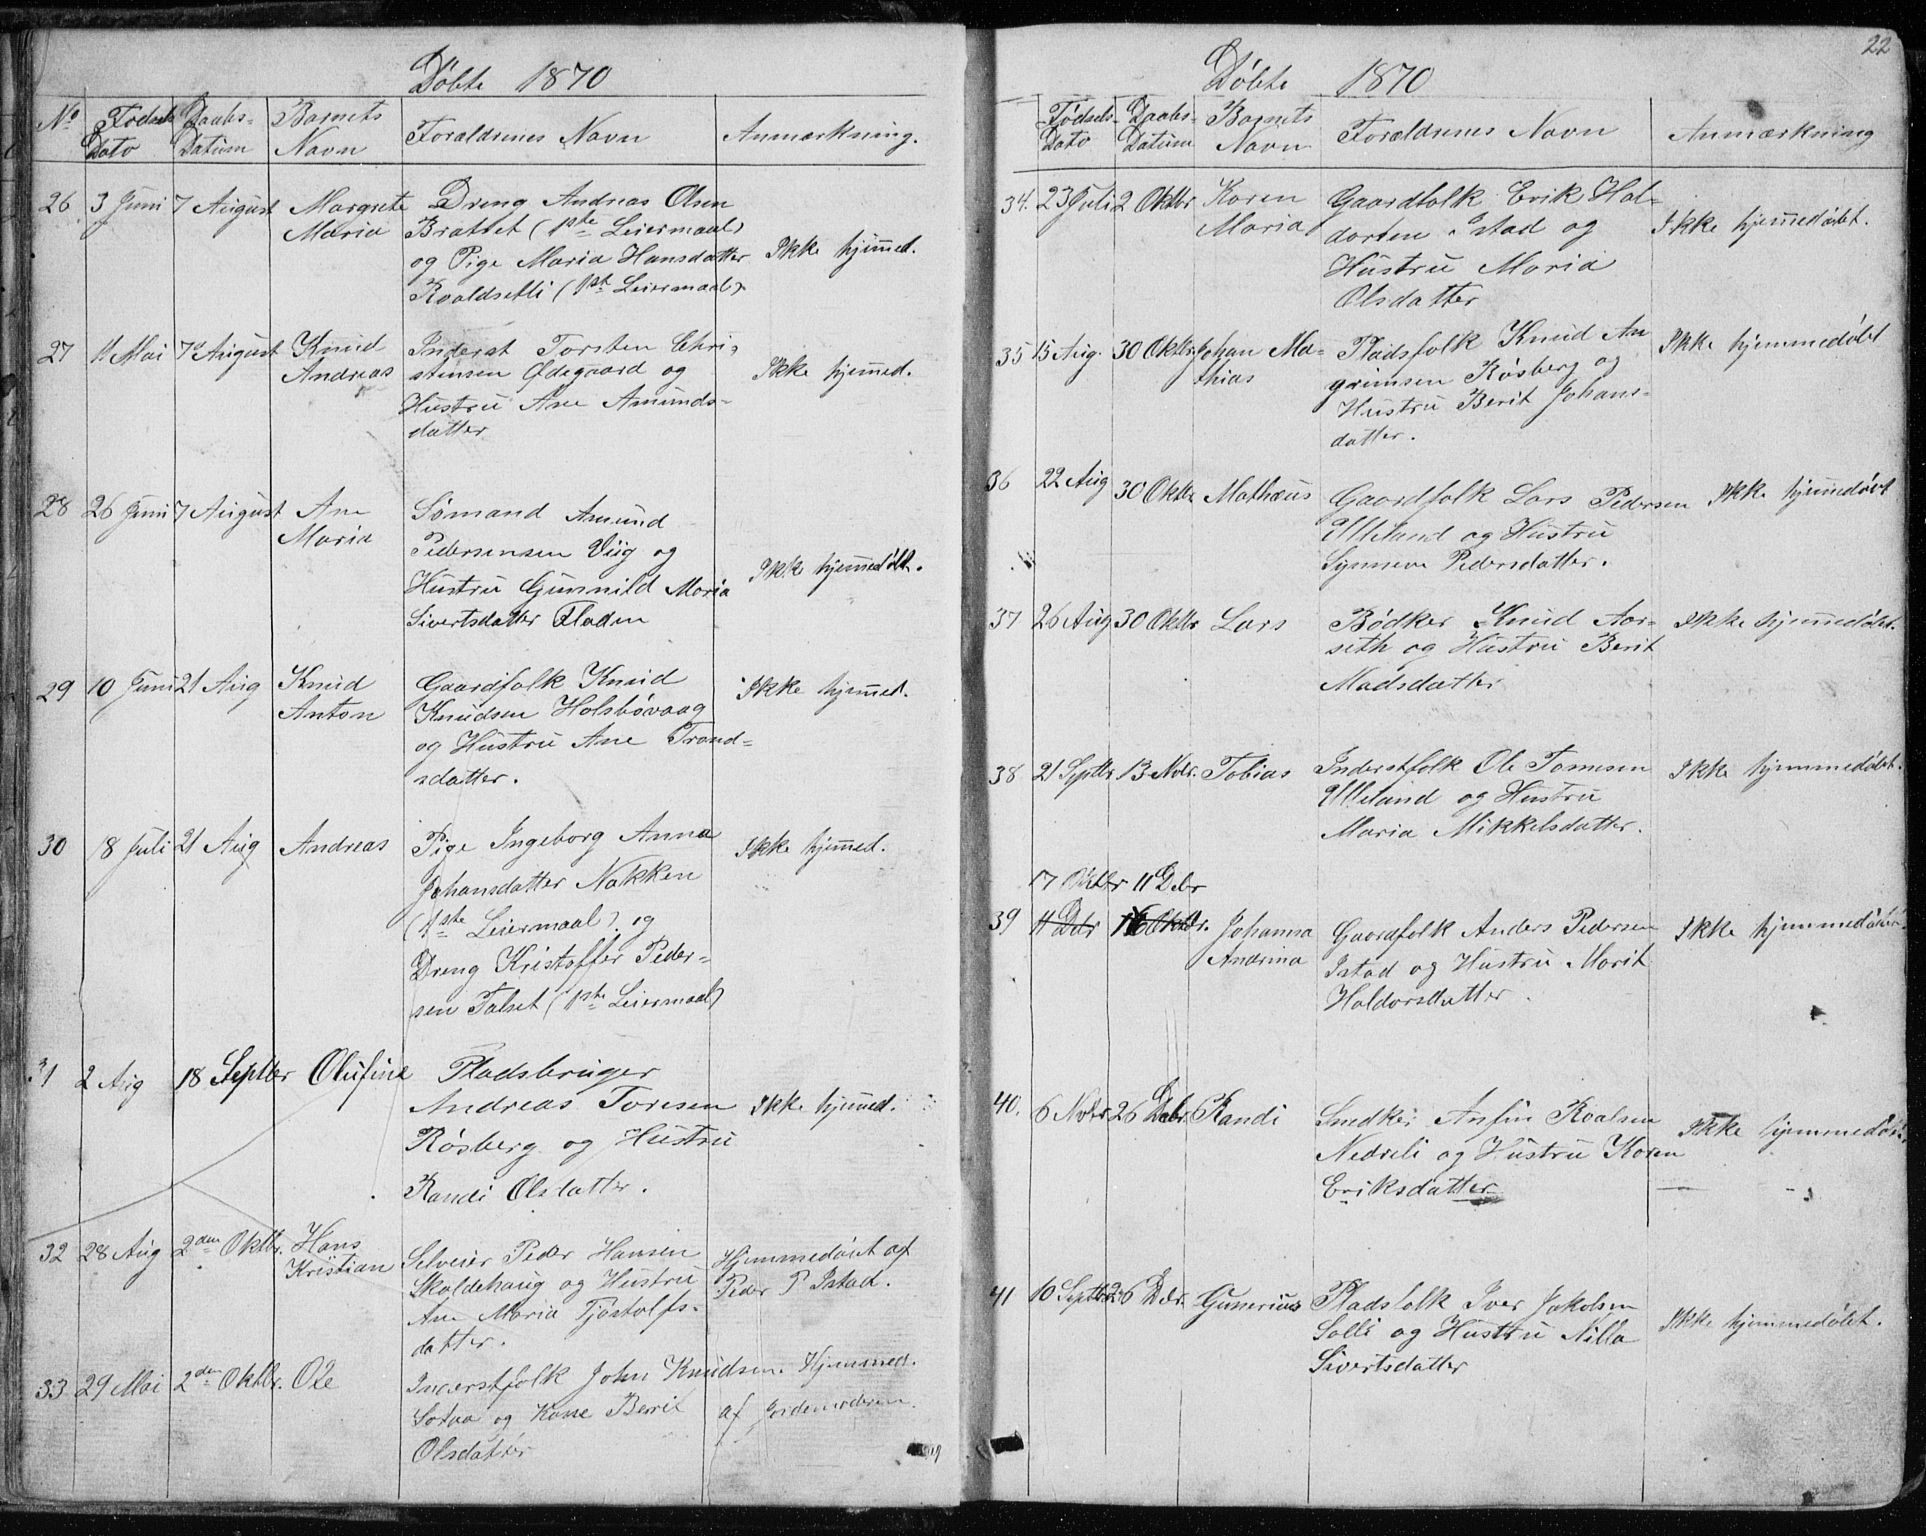 Døbte 1870
No Fødsels Dato Daabs-Datum Barnets Navn Forældrenes Navn Anmærkning.
26 3 Juni 7 August Margrete Dreng Andreas Olsen
Maria Brattet (1ste Leiermaal)
og Pige Maria Hansdatter Ikke hjemmed.
Roaldsetli (1ste Leiermaal).
27 11 Mai 7de August Knud Inderst Torsten Chri-
Andreas stensen Ødegaard og Ikke hjemmed.
Hustru Ane Amunds-
datter
28 26 Juni 7 August Ane Sømand Amund
Maria Pedersensen Viig og
Hustru Gunnild Maria Ikke hjemmedøbt.
Sivertsdatter Floden
29 10 Juni 21 Aug Knud Gaardfolk Knud Ikke hjemmed.
Anton Knudsen Holsbøvaag
og Hustru Ane Trond-
sdatter.
30 18 Juli 21 Aug Andreas Pige Ingeborg Anna Ikke hjemmed.
Johansdatter Nakken
(1ste Leiermaal) og
Dreng Kristoffer Peder-
sen Talset (1ste Leiermaal)
31 2 Aug 18 Septbr Olufine Pladsbruger
Andreas Toresen Ikke hjemmed.
Røsberg og Hustru
Randi Olsdatter.
32 28 Aug 2den Oktbr. Hans Selveier Peder Hansen Hjemmedøbt af
Kristian Skaldehaug og Hustru Peder P Istad.
Ane Maria Tjøstolfs-
datter.
33 29 Mai 2den Oktbr. Ole Inderstfolk John Knudsen Hjemmed.
Sotaa og Kone Berrit af Jordemoderen.
Olsdatter
22
Døbte 1870
Fødsels Dato Daabs-Datum Barnets Navn Forældrenes Navn Anmærkning
34. 23 Juli 2 Oktbr Karen Gaardfolk Erik Hal-
Maria dorsen Istad og Ikke hjemmedøbt.
Hustru Maria
Olsdatter
35 15 Aug. 30 Oktbr. Johan Ma- Pladsfolk Knud An Ikke hjemmedøbt
thias grimsen Røsberg og
Hustru Berit Johans-
datter.
36 22 Aug 30 Oktbr Mathæus Gaardfolk Lars Pedersen Ikke hjemmedøbt
Ulleland og Hustru
Synneve Pedersdatter.
37 26 Aug 30 Oktbr Lars Bødker Knud Aar- Ikke hjemmedøbt.
seth og Hustru Berit
Madsdatter
38 21 Septbr 13 Novbr. Tobias Inderstfolk Ole Tomesen Ikke hjemmedøbt.
Ulleland og Hustru
Maria Mikkelsdatter.
17 Oktbr 11 Debr
39 11 Debr 16 Oktbr. Johanna Gaardfolk Anders Pedersen Ikke hjemmedøbt.
Andrina Istad og Hustru Marit
Haldorsdatter.
40. 6 Novbr 26 Debr Randi Snedker Anfin Roalsen
Nedreli og Hustru Karen Ikke hjemmedøbt
Eriksdatter
41 10 Septbr 26 Debr. Gunerius Pladsfolk Iver Jakobsen
Solli og Hustru Nilla Ikke hjemmedøbt.
Sivertsdatter